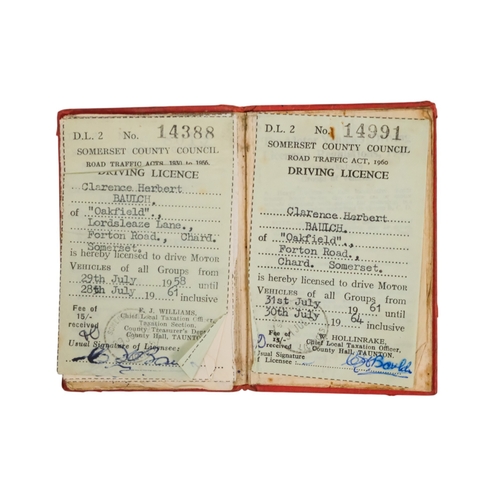 D.L. 2 No. 14388
SOMERSET COUNTY COUNCIL
ROAD TRAFFIC ACTS, 1930 to 1956.
DRIVING LICENCE
Clarence Herbert
BAULCH.
of "Oakfield".,
Lordsleaze Lane.,
Forton Road., Chard.
Somerset.
is hereby licensed to drive MOTOR
VEHICLES of all Groups from
29th July 1958 until
28th July 1961 inclusive
Fee of
15/-
received
E. J. WILLIAMS,
Chief Local Taxation Officer,
Taxation Section,
County Treasurer's Dept
County Hall, TAUNTON.
Usual Signature of Licensee:
D.L. 2 No. 14991
SOMERSET COUNTY COUNCIL
ROAD TRAFFIC ACT, 1960
DRIVING LICENCE
Clarence Herbert
BAULCH.
of "Oakfield".,
Forton Road.,
Chard. Somerset.
is hereby licensed to drive MOTOR
VEHICLES of all Groups from
31st July 1961 until
30th July 1964 inclusive
Fee of
15/-
received
W. HOLLINRAKE,
Chief Local Taxation Officer,
County Hall, TAUNTON.
Usual Signature
f Licensee